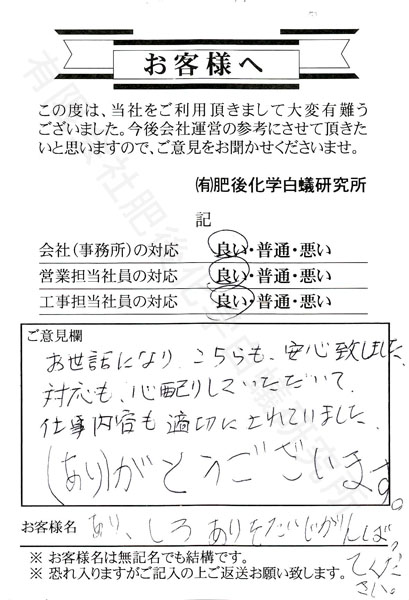 お客様へ
この度は、当社をご利用頂きまして大変有難う
ございました。今後会社運営の参考にさせて頂きた
いと思いますので、ご意見をお聞かせくださいませ。
㈲肥後化学白蟻研究所
記
会社（事務所）の対応 良い・普通・悪い
営業担当社員の対応 良い・普通・悪い
工事担当社員の対応 良い・普通・悪い
ご意見欄
お世話になり こちらも、安心致しました
対応も、心配りしていただいて、
仕事内容も適切にされていました
(あり)がとうございます。
お客様名 あり、しろありそたいじがんばっ
てくださいさい。
※ お客様名は無記名でも結構です。
※ 恐れ入りますがご記入の上ご返送お願い致します。
有限会社肥後化学白蟻研究所